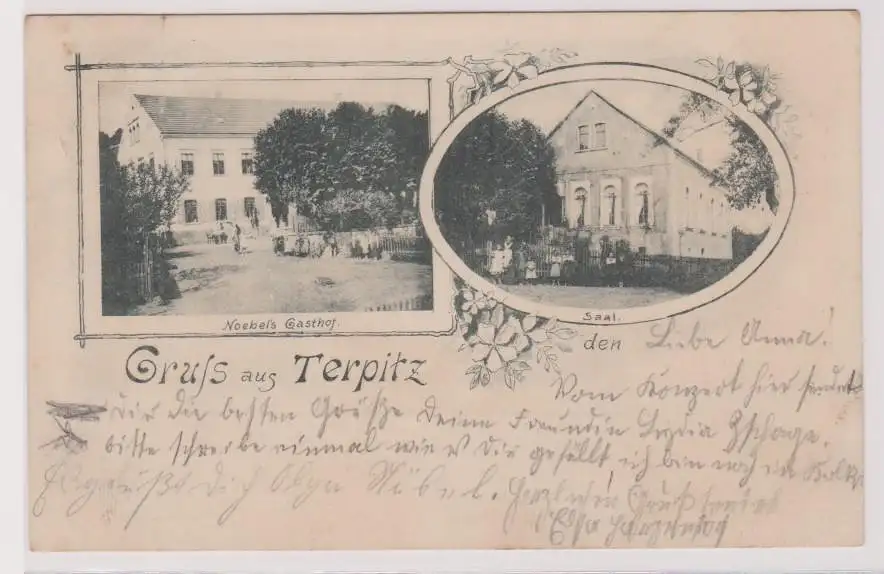 Noebel's Gasthof.
Saal.
Gruss aus Terpitz
den Liebe Anna!
Vom Konzert hier sendet
dir die besten Grüße deine Freundin Lydia
bitte schreibe einmal wie es dir gefällt, ich bin noch in
dich Olga Nübel. Herzlichen Gruß sendet
Elsa